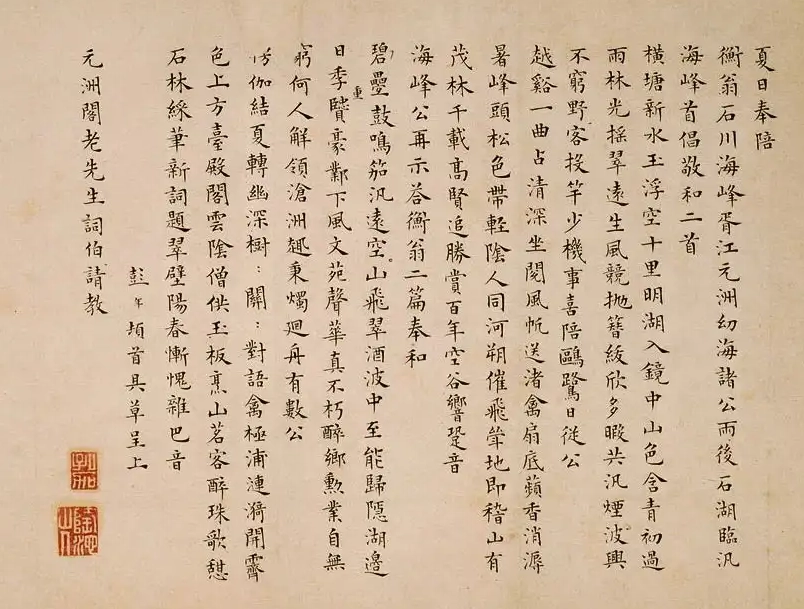 夏日奉陪
衡翁石川海峰胥江元洲幼海諸公雨後石湖臨汎
海峰首倡敬和二首
橫塘新水玉浮空十里明湖入鏡中山色含青初過
雨林光搖翠遠生風競抛簪紱欣多暇共汎煙波興
不窮野客投竿少機事喜陪鷗鷺日從公
越谿一曲占清深坐閱風帆送渚禽扇底蘋香消溽
暑峰頭松色帶輕陰人同河朔催飛聳地即稽山有
茂林千載高賢追勝賞百年空谷嚮跫音
海峰公再示荅衡翁二篇奉和
碧疊鼓鳴笳汎遠空山飛翠酒波中至能歸隱湖邊
日季驥重豪鄴下風文苑聲華真不朽醉鄉勲業自無
窮何人解領滄洲趣秉燭迴舟有數公
伽結夏轉幽深樹：關：對語禽極浦漣漪開霽
色上方臺殿閣雲陰僧供玉板烹山茗客醉珠歌憇
石林綵筆新詞題翠壁陽春慚愧雜巴音
彭年頓首具草呈上
元洲閣老先生詞伯請教